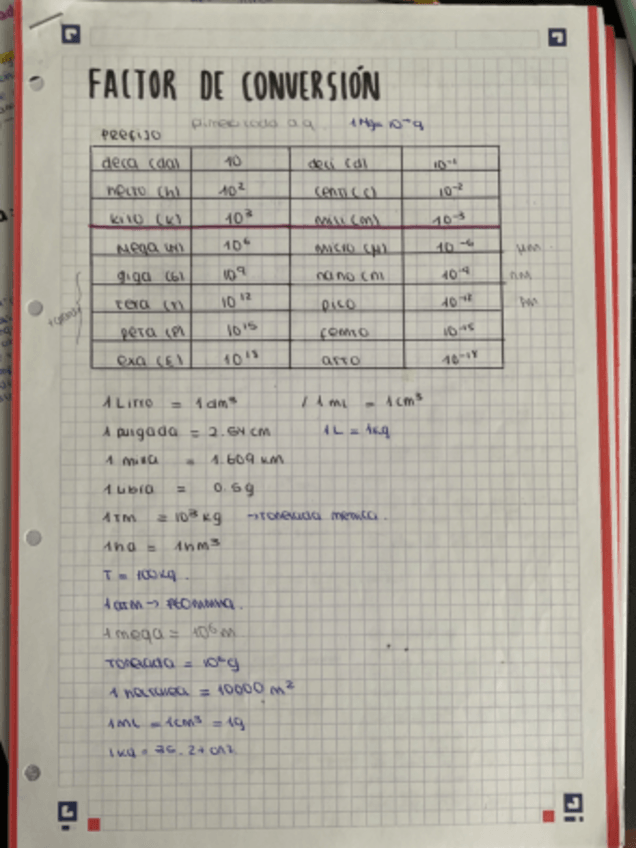 FACTOR DE CONVERSIÓN
PREFIJO
deca (da) 10 deci (d) 10⁻¹
hecto (h) 10² centi (c) 10⁻²
kilo (k) 10³ mili (m) 10⁻³
Mega (M) 10⁶ micro (μ) 10⁻⁶ μm
giga (G) 10⁹ nano (n 10⁻⁹ nm
tera (T) 10¹² pico 10⁻¹² pm
peta (P) 10¹⁵ femto 10⁻¹⁵
exa (E) 10¹⁸ atto 10⁻¹⁸
1 Litro = 1 dm³ / 1 mL = 1 cm³
1 pulgada = 2.54 cm 1L = 1kg
1 milla = 1.609 km
1 libra = 0.5 g
1 TM = 10³ kg → Tonelada metrica.
1 ha = 1 hm³
T = 100 kg.
1 atm → 760 mmHg.
1 mega = 10⁶ m
Tonelada = 10⁶ g
1 hectarea = 10000 m²
1 mL = 1 cm³ = 1g
1 kg =